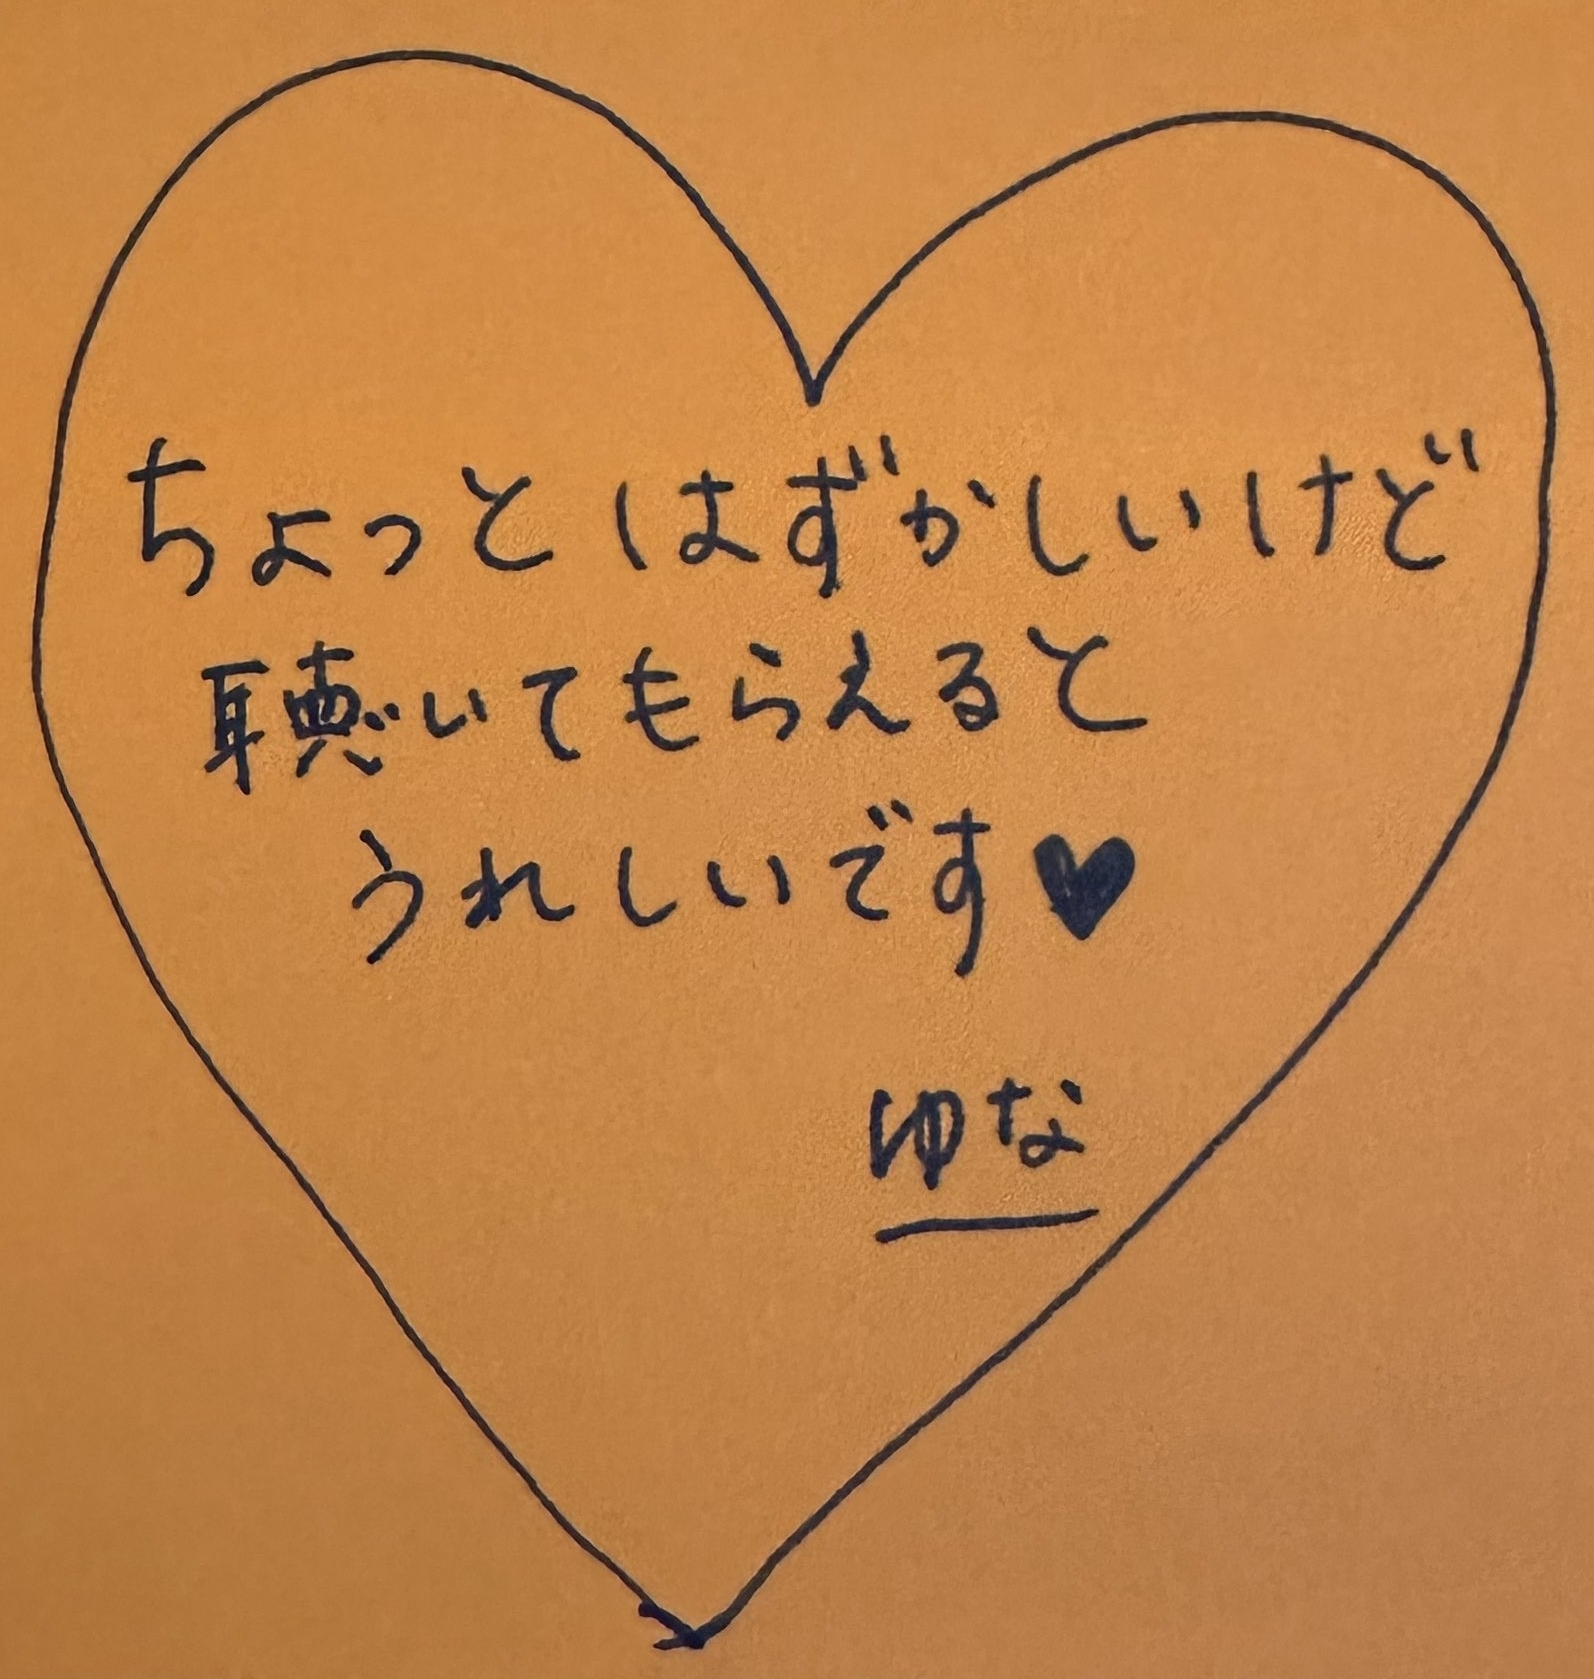 ちょっとはずかしいけど
聴いてもらえると
うれしいです♥
ゆな